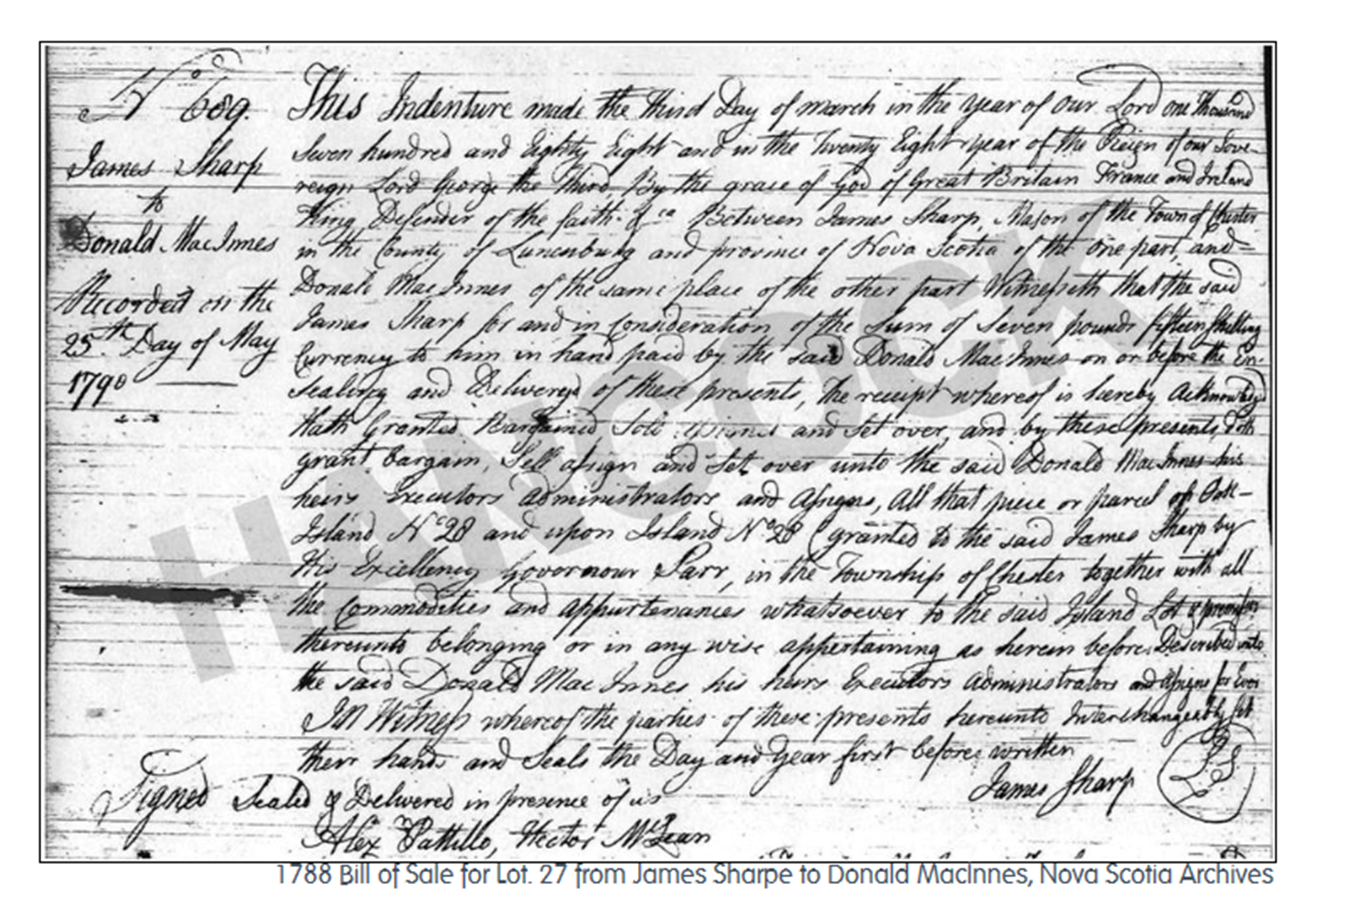 No 689.
James Sharp
to
Donald MacInnes
Recorded on the
25th Day of May
1790
This Indenture made the third Day of march in the year of our Lord one thousand
Seven hundred and Eighty Eight and in the Twenty Eight year of the Reign of our Sove-
reign Lord George the Third, By the grace of God of Great Britain France and Ireland
King, Defender of the faith &ca Between James Sharp, Mason of the Town of Chester
in the County of Lunenburg and province of Nova Scotia of the one part, and
Donald MacInnes of the same place of the other part Witnesseth that the said
James Sharp for and in Consideration of the Sum of Seven pounds fifteen Shilling
Currency to him in hand paid by the said Donald MacInnes on or before the En-
Sealing and Delivery of these presents, the receipt whereof is hereby
Hath Granted Bargained Sold and Set over, and by these presents, doth
grant bargain, Sell assign and Set over unto the said Donald MacInnes his
heirs Executors Administrators and Assigns, All that piece or parcel of
Island No 28 and upon Island No 28 (granted to the said James Sharp by
His Excellency Governour Parr, in the Township of Chester together with all
the Comodities and appurtenances whatsoever to the said Island Lot &
thereunto belonging or in any wise appertaining as herein before Described unto
the said Donald MacInnes his heirs Executors Administrators and Assigns for Ever
In Witness whereof the parties of these presents hereunto Interchangeably Set
their hands and Seals the Day and Year first before written
James Sharp LS
Signed Sealed & Delivered in presence of us
Alex Pattillo, Hector McLean
HANCOCK
1788 Bill of Sale for Lot. 27 from James Sharpe to Donald MacInnes, Nova Scotia Archives